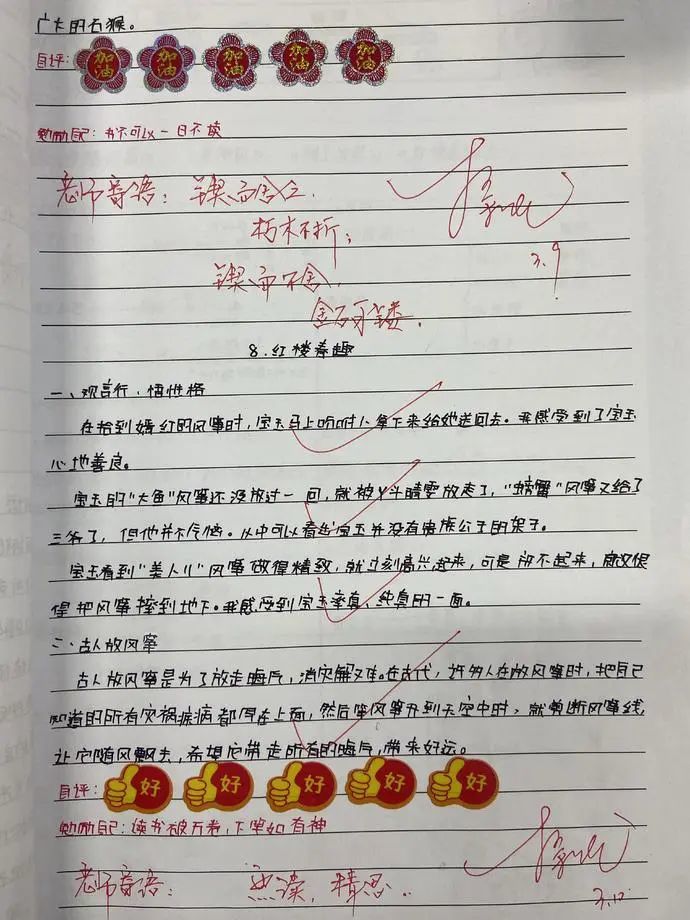 广大的石猴。
自评: 加油 加油 加油 加油 加油
勉励自己: 书不可以一日不读
老师寄语: 锲而舍之,
朽木不折;
3.9
锲而不舍,
金石可镂.
8.红楼春趣
一、观言行、悟性格
在拾到嫣红的风筝时,宝玉马上吩咐人拿下来给她送回去。我感受到了宝玉
心地善良。
宝玉的“大鱼”风筝还没放过一回,就被丫头晴雯放走了,“螃蟹”风筝又给了
三爷了,但他并不气恼。从中可以看出宝玉并没有贵族公子的架子。
宝玉看到“美人儿”风筝做得精致,就立刻高兴起来,可是放不起来,就又恨
得把风筝摔到地下。我感受到宝玉率真、纯真的一面。
二、古人放风筝
古人放风筝是为了放走晦气,消灾解难。在古代,许多人在放风筝时,把自己
知道的所有灾祸疾病都写在上面,然后等风筝升到天空中时,就剪断风筝线
让它随风飘去,希望它带走所有的晦气,带来好运。
自评: 好 好 好 好 好
勉励自己: 读书破万卷,下笔如有神
老师寄语: 熟读,精思..